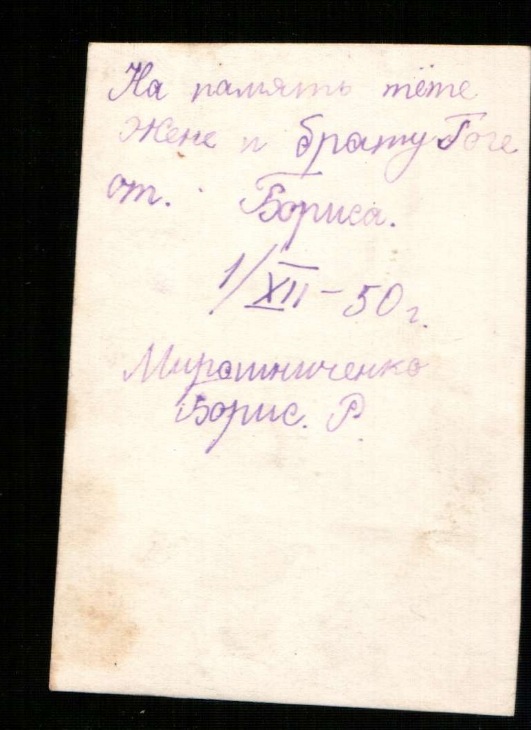 На память тёте
Жене и брату Гоге
от. Бориса.
1/XII – 50 г.
Мирошниченко
Борис. Р.